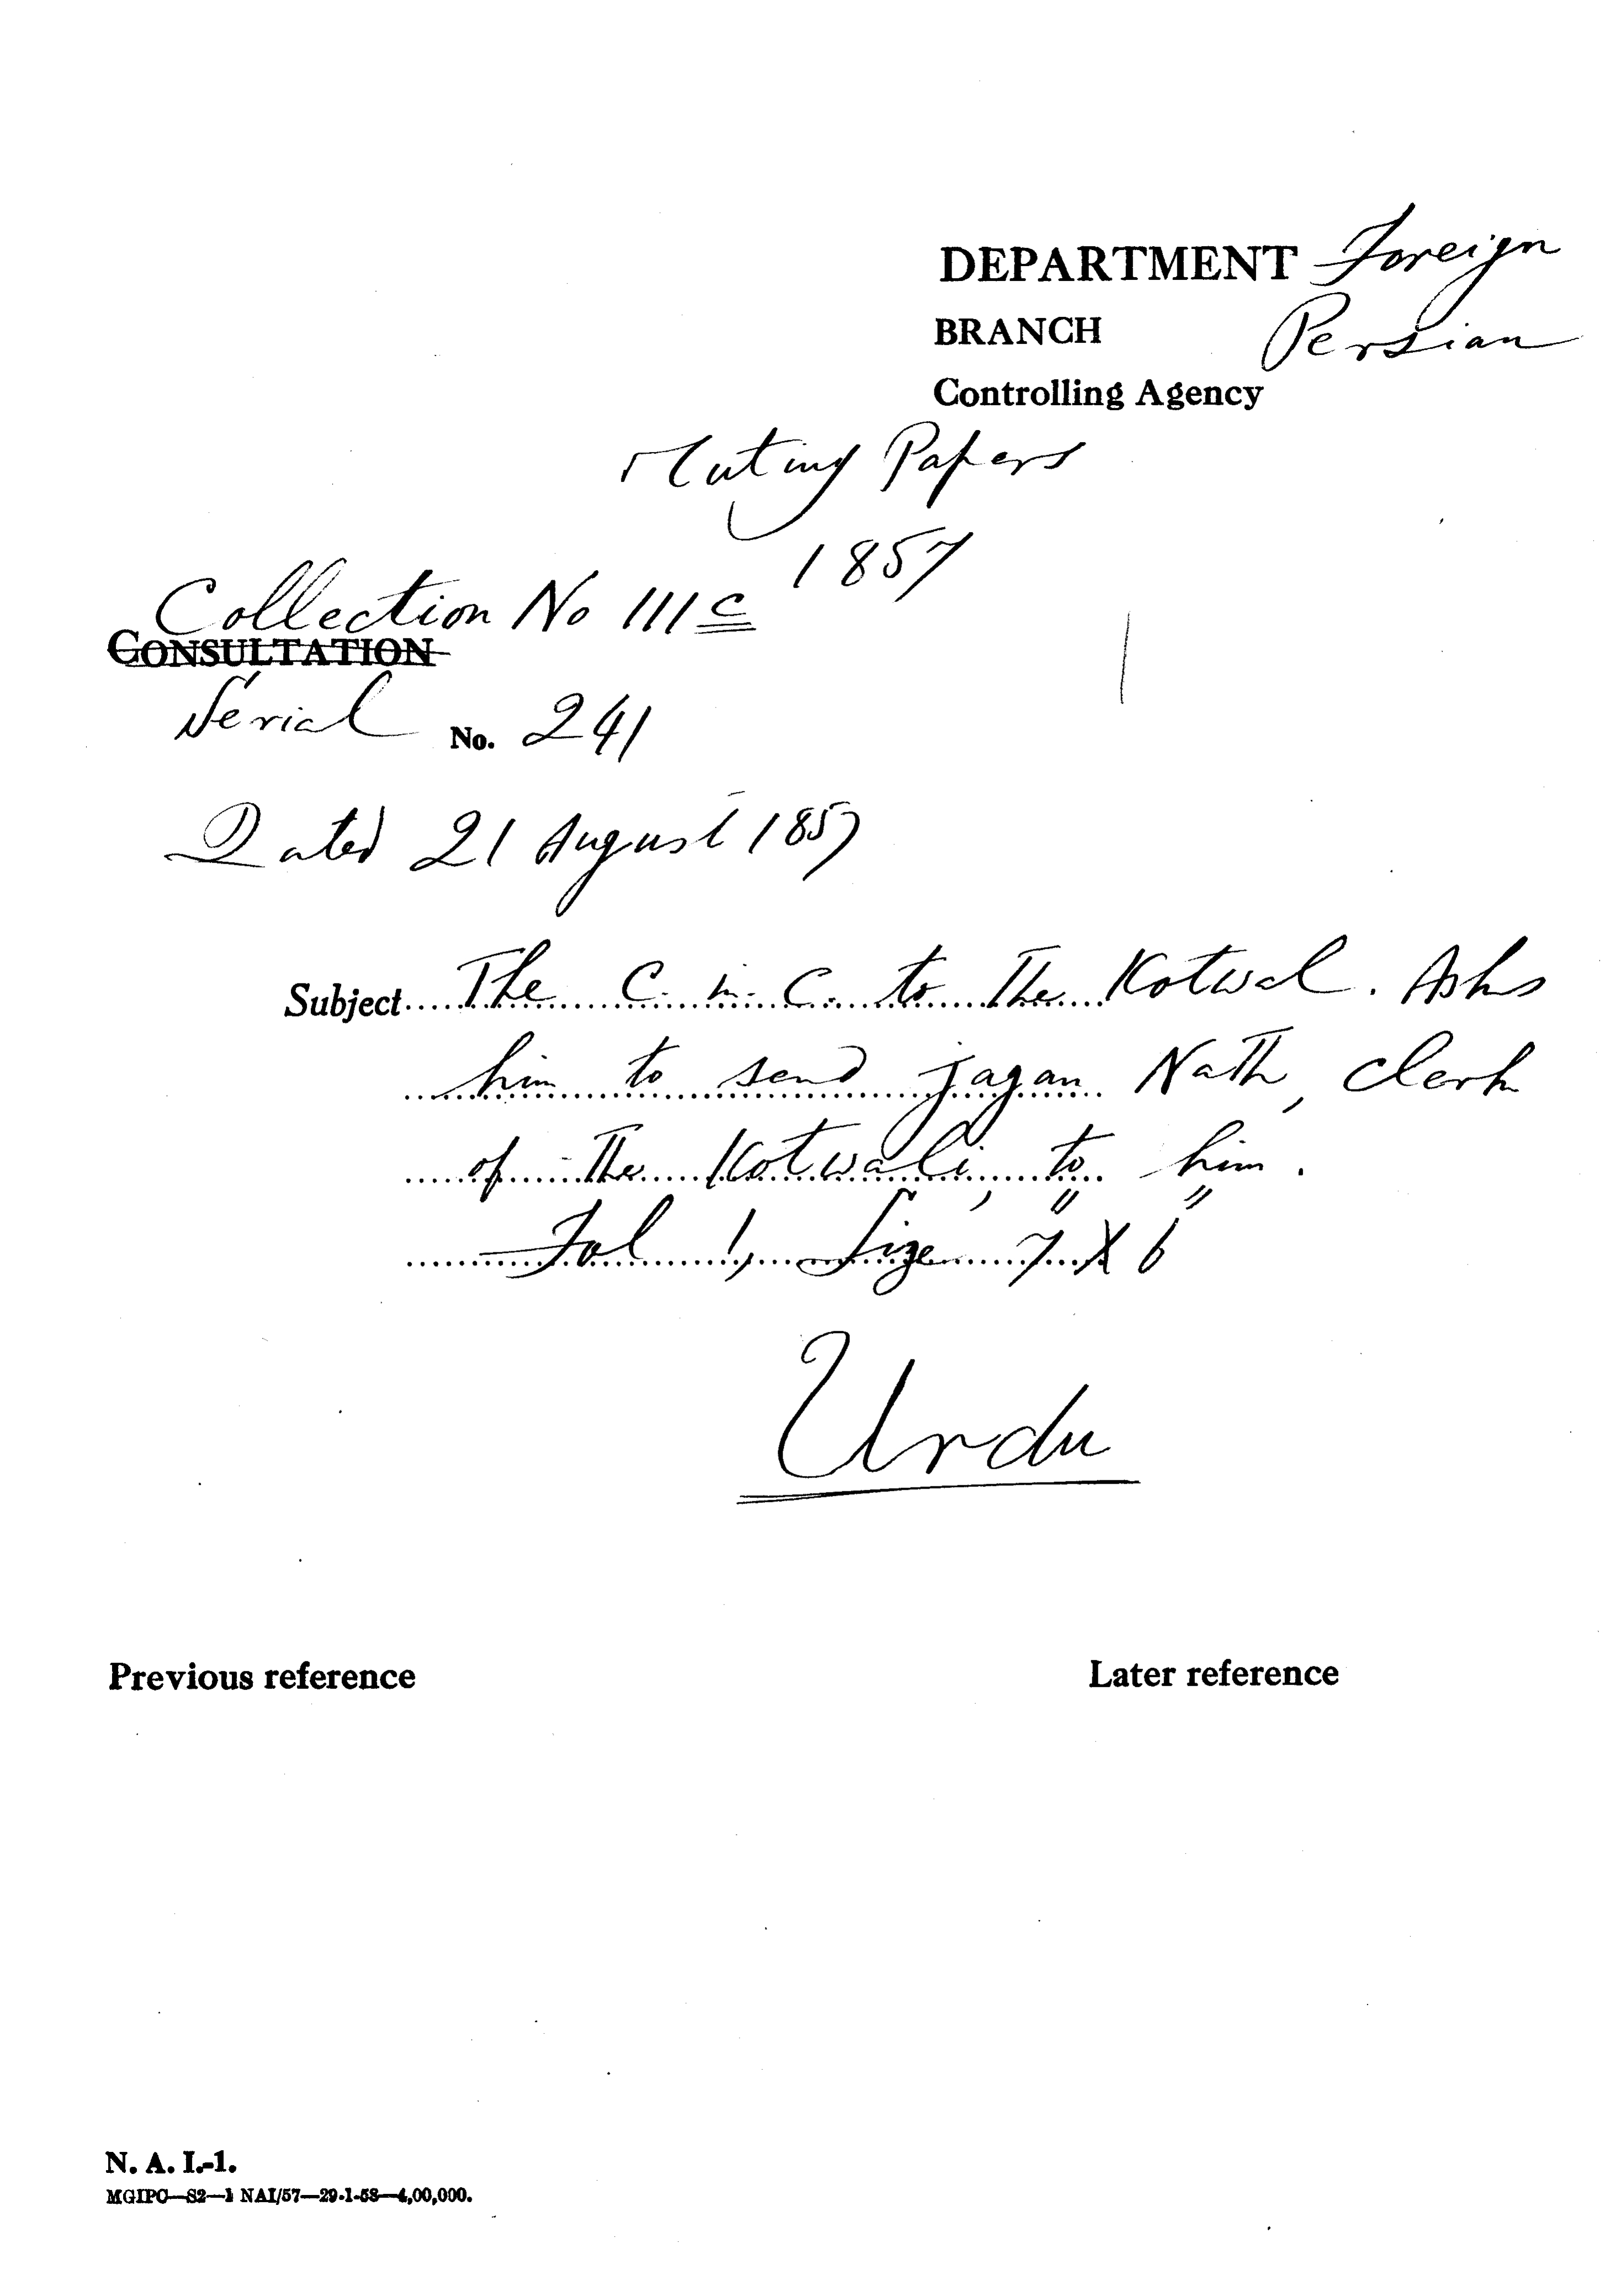 DEPARTMENT Foreign
BRANCH Persian
Controlling Agency
Mutiny Papers
1857
Collection No 111 C
CONSULTATION
Serial No. 241
Dated 21 August 1857
Subject The C. in. C. to The Kotwal. Asks
him to send Jagan Nath, clerk
of The Kotwali, to him.
Fol 1, Size 7" X 6"
Urdu
Previous reference Later reference
N. A. I.-1.
MGIPC—S2—1 NAI/57—29-1-58—4,00,000.